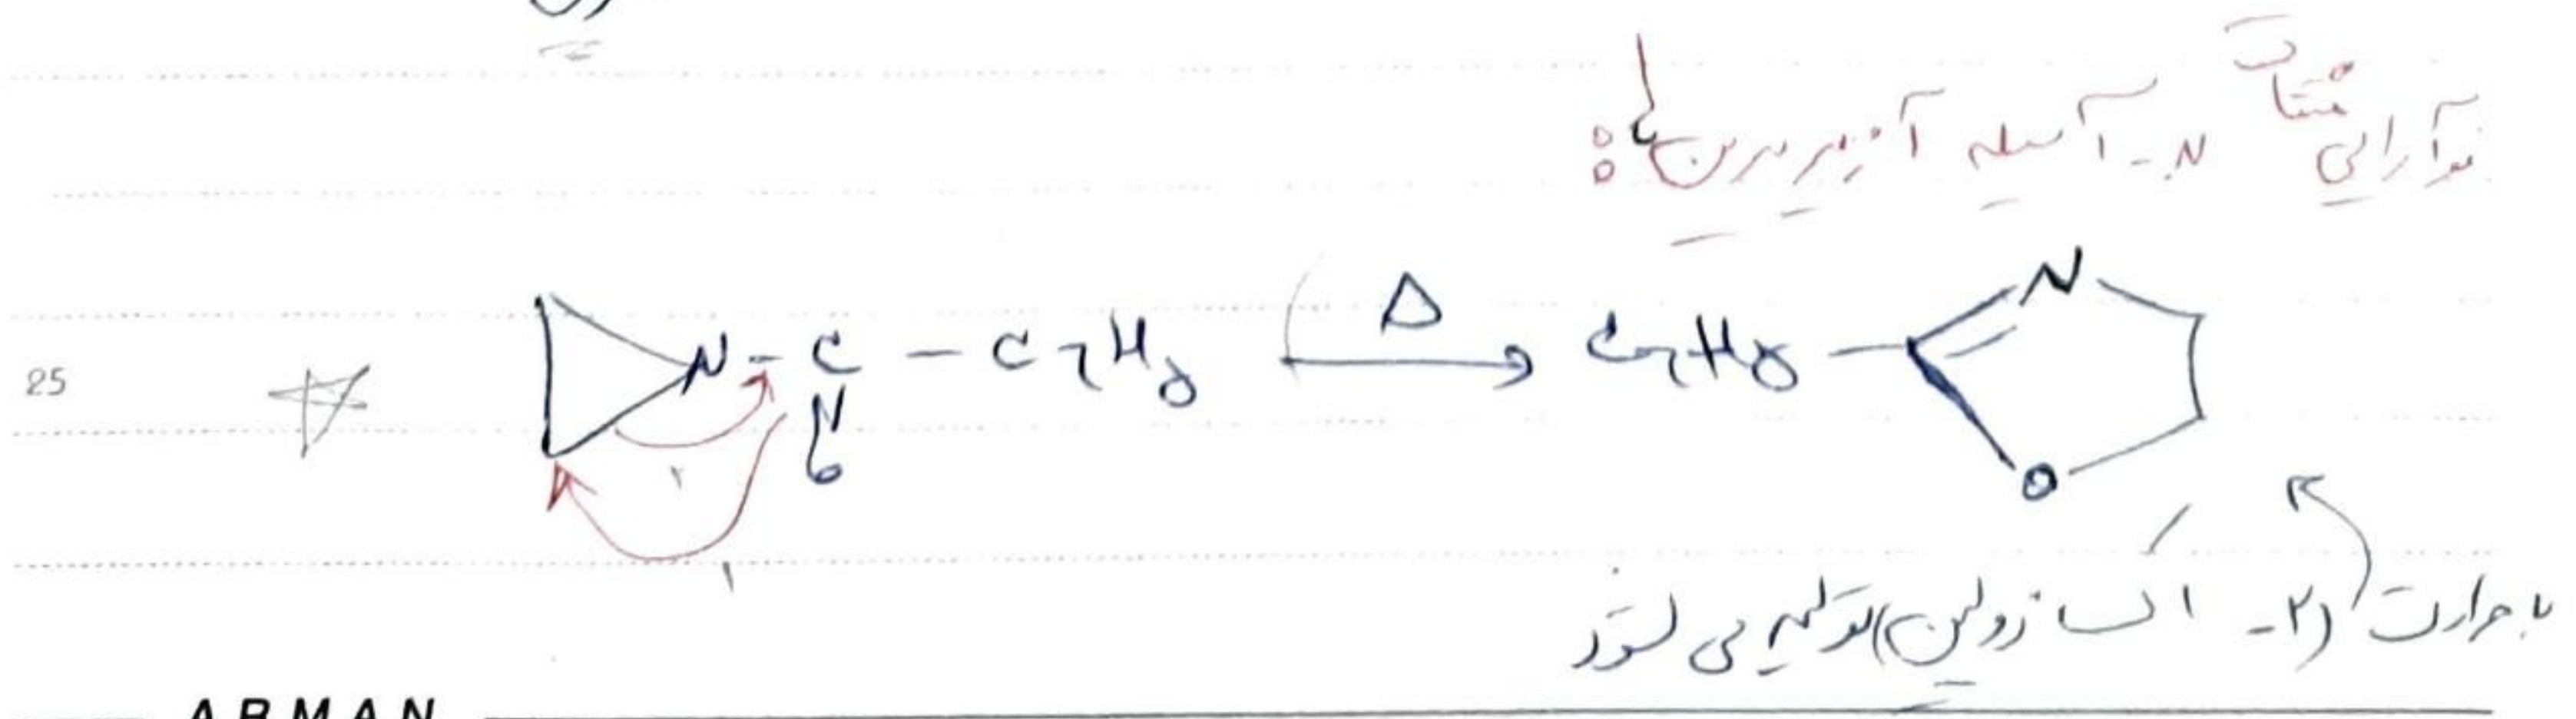 نوآرائی مشتقات N- آسیله آزیریدین ها:
25 N - C - C₂H₅ Δ C₂H₅ N
O O
۲
۱
با حرارت (۲- اکسازولین) تولید می شود
ARMAN